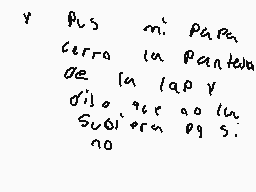 y pus mi papa
cerro la pantalla
de la lap y
dijo que no la
subiera pq si
no